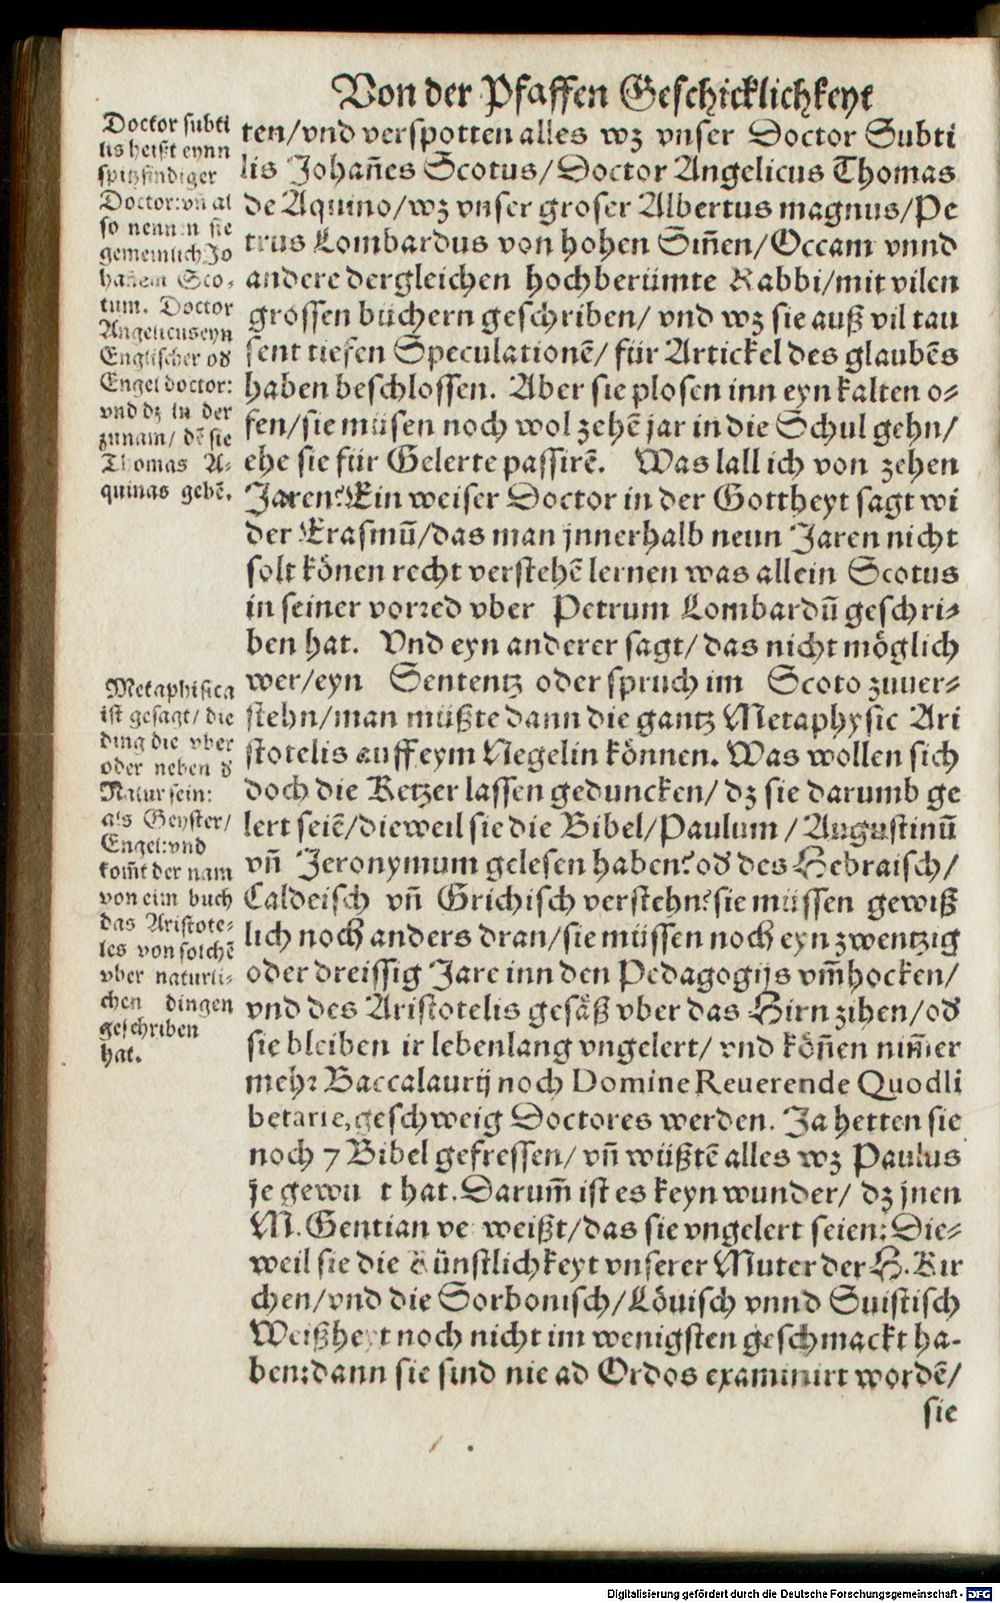 Von der Pfaffen Geschicklichkeyt
Doctor subti
lis heißt eynn
spitzfindiger
Doctor: vñ al
so nennen sie
gemeinlich Jo
hañem Sco-
tum. Doctor
Angelicus eyn
Englischer od
Engel doctor:
vnd dz in der
zunam/ dē sie
Thomas A-
quinas gebē.
ten/vnd verspotten alles wz vnser Doctor Subti
lis Johañes Scotus/Doctor Angelicus Thomas
de Aquino/wz vnser groser Albertus magnus/Pe
trus Lombardus von hohen Siñen/Occam vnnd
andere dergleichen hochberümte Rabbi/mit vilen
grossen büchern geschriben/ vnd wz sie auß vil tau
sent tiefen Speculationē/ für Artickel des glaubēs
haben beschlossen. Aber sie plosen inn eyn kalten o-
fen/sie müsen noch wol zehē jar in die Schul gehn/
ehe sie für Gelerte passirē. Was lall ich von zehen
Jaren? Ein weiser Doctor in der Gottheyt sagt wi
der Erasmū/das man jnnerhalb neun Jaren nicht
solt könen recht verstehē lernen was allein Scotus
in seiner vorred vber Petrum Lombardū geschri-
ben hat. Vnd eyn anderer sagt/das nicht möglich
wer/eyn Sententz oder spruch im Scoto zuuer-
stehn/man müßte dann die gantz Metaphysic Ari
stotelis auff eym Negelin können. Was wollen sich
doch die Ketzer lassen geduncken/ dz sie darumb ge
lert seiē/dieweil sie die Bibel/Paulum/Augustinū
vñ Jeronymum gelesen haben? od des Hebraisch/
Caldeisch vñ Grichisch verstehn? sie müssen gewiß
lich noch anders dran/sie müssen noch eyn zwentzig
oder dreissig Jare inn den Pedagogijs vm̄hocken/
vnd des Aristotelis gesäß vber das Hirn zihen/od
sie bleiben ir lebenlang vngelert/ vnd köñen nim̄er
mehr Baccalaurij noch Domine Reuerende Quodli
betarie, geschweig Doctores werden. Ja hetten sie
noch 7 Bibel gefressen/ vñ wüßtē alles wz Paulus
je gewu t hat. Darum̄ ist es keyn wunder/ dz jnen
M. Gentian ve weißt/das sie vngelert seien: Die-
weil sie die Künstlichkeyt vnserer Muter der H. Kir
chen/vnd die Sorbonisch/Löuisch vnnd Suistisch
Weißheyt noch nicht im wenigsten geschmackt ha-
ben: dann sie sind nie ad Ordos examinirt wordē/
sie
Metaphisica
ist gesagt/ die
ding die vber
oder neben d
Natur sein:
als Geyster/
Engel: vnd
kom̄t der nam
von eim buch
das Aristote-
les von solchē
vber naturli-
chen dingen
geschriben
hat.
Digitalisierung gefördert durch die Deutsche Forschungsgemeinschaft - DFG